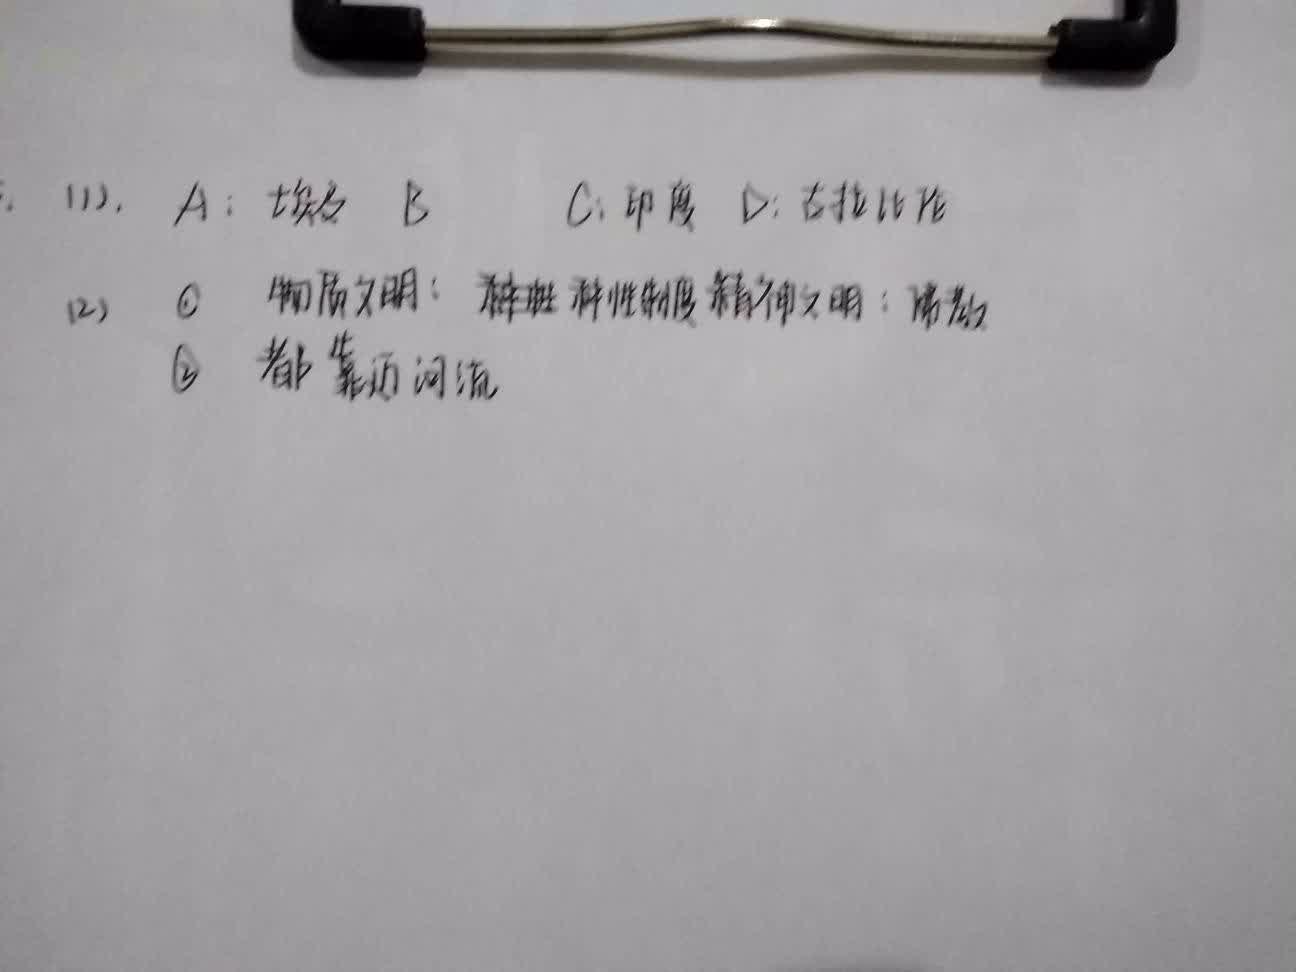 (1). A: 埃及 B C: 印度 D: 古拉比伦
(2) ① 物质文明: 种性制度 精神文明: 佛教
② 都靠近河流